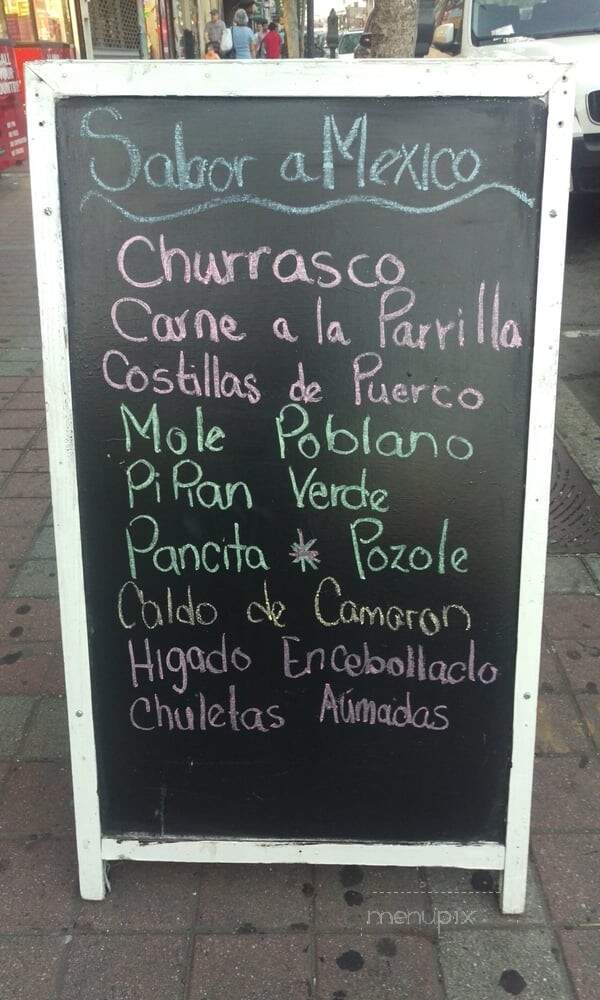 Sabor a Mexico
Churrasco
Carne a la Parrilla
Costillas de Puerco
Mole Poblano
PiPian Verde
Pancita * Pozole
Caldo de Camaron
Higado Encebollado
Chuletas Aúmadas
menupix